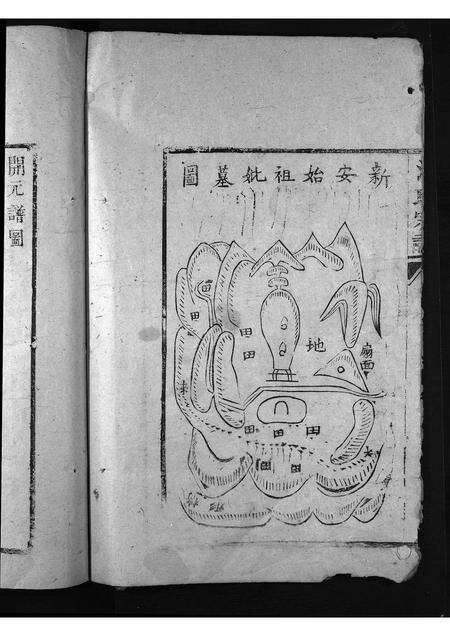 新安始祖妣墓圖
地
扇面
田
田
田
田
田
田
田
田
開元譜圖